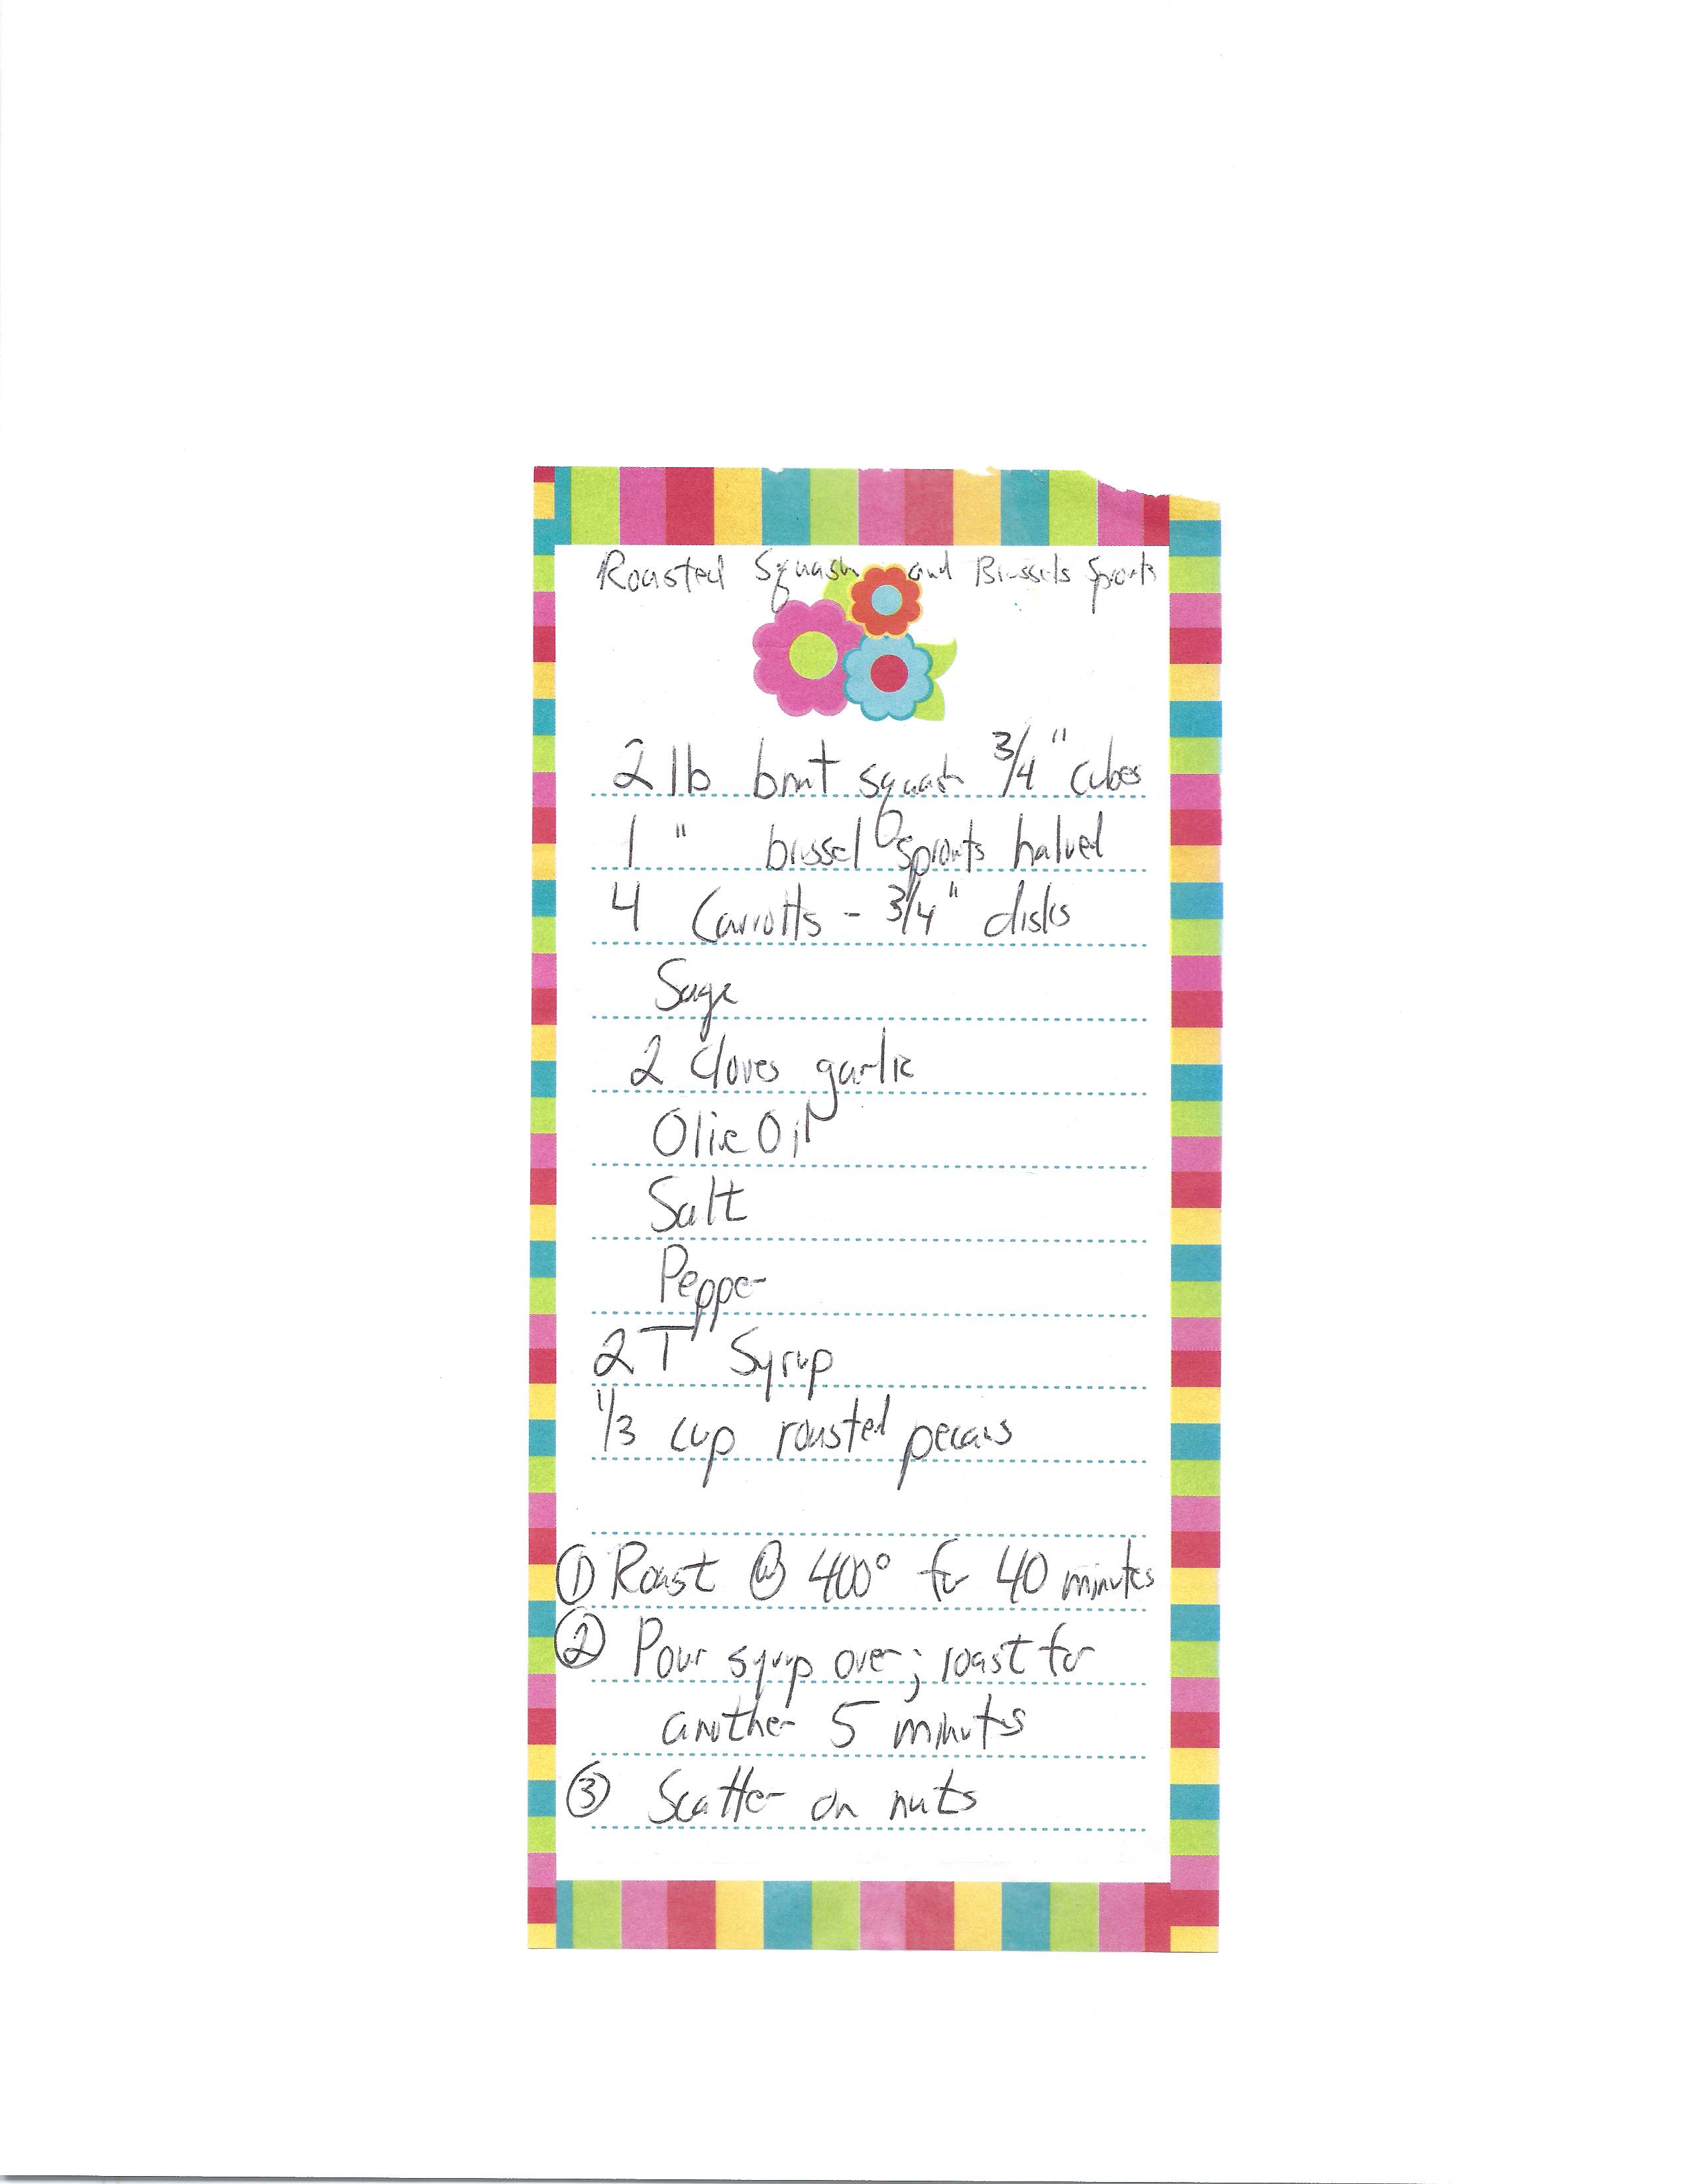 Roasted Squash and Brussels Sprouts
2 lb brnt squash 3/4" cubes
1 " brussel sprouts halved
4 Carrotts - 3/4" disks
Sage
2 cloves garlic
Olie Oil
Salt
Pepper
2 T Syrup
1/3 cup roasted pecans
① Roast @ 400° for 40 minutes
② Pour syrup over; roast for
another 5 minuts
③ Scatter on nuts